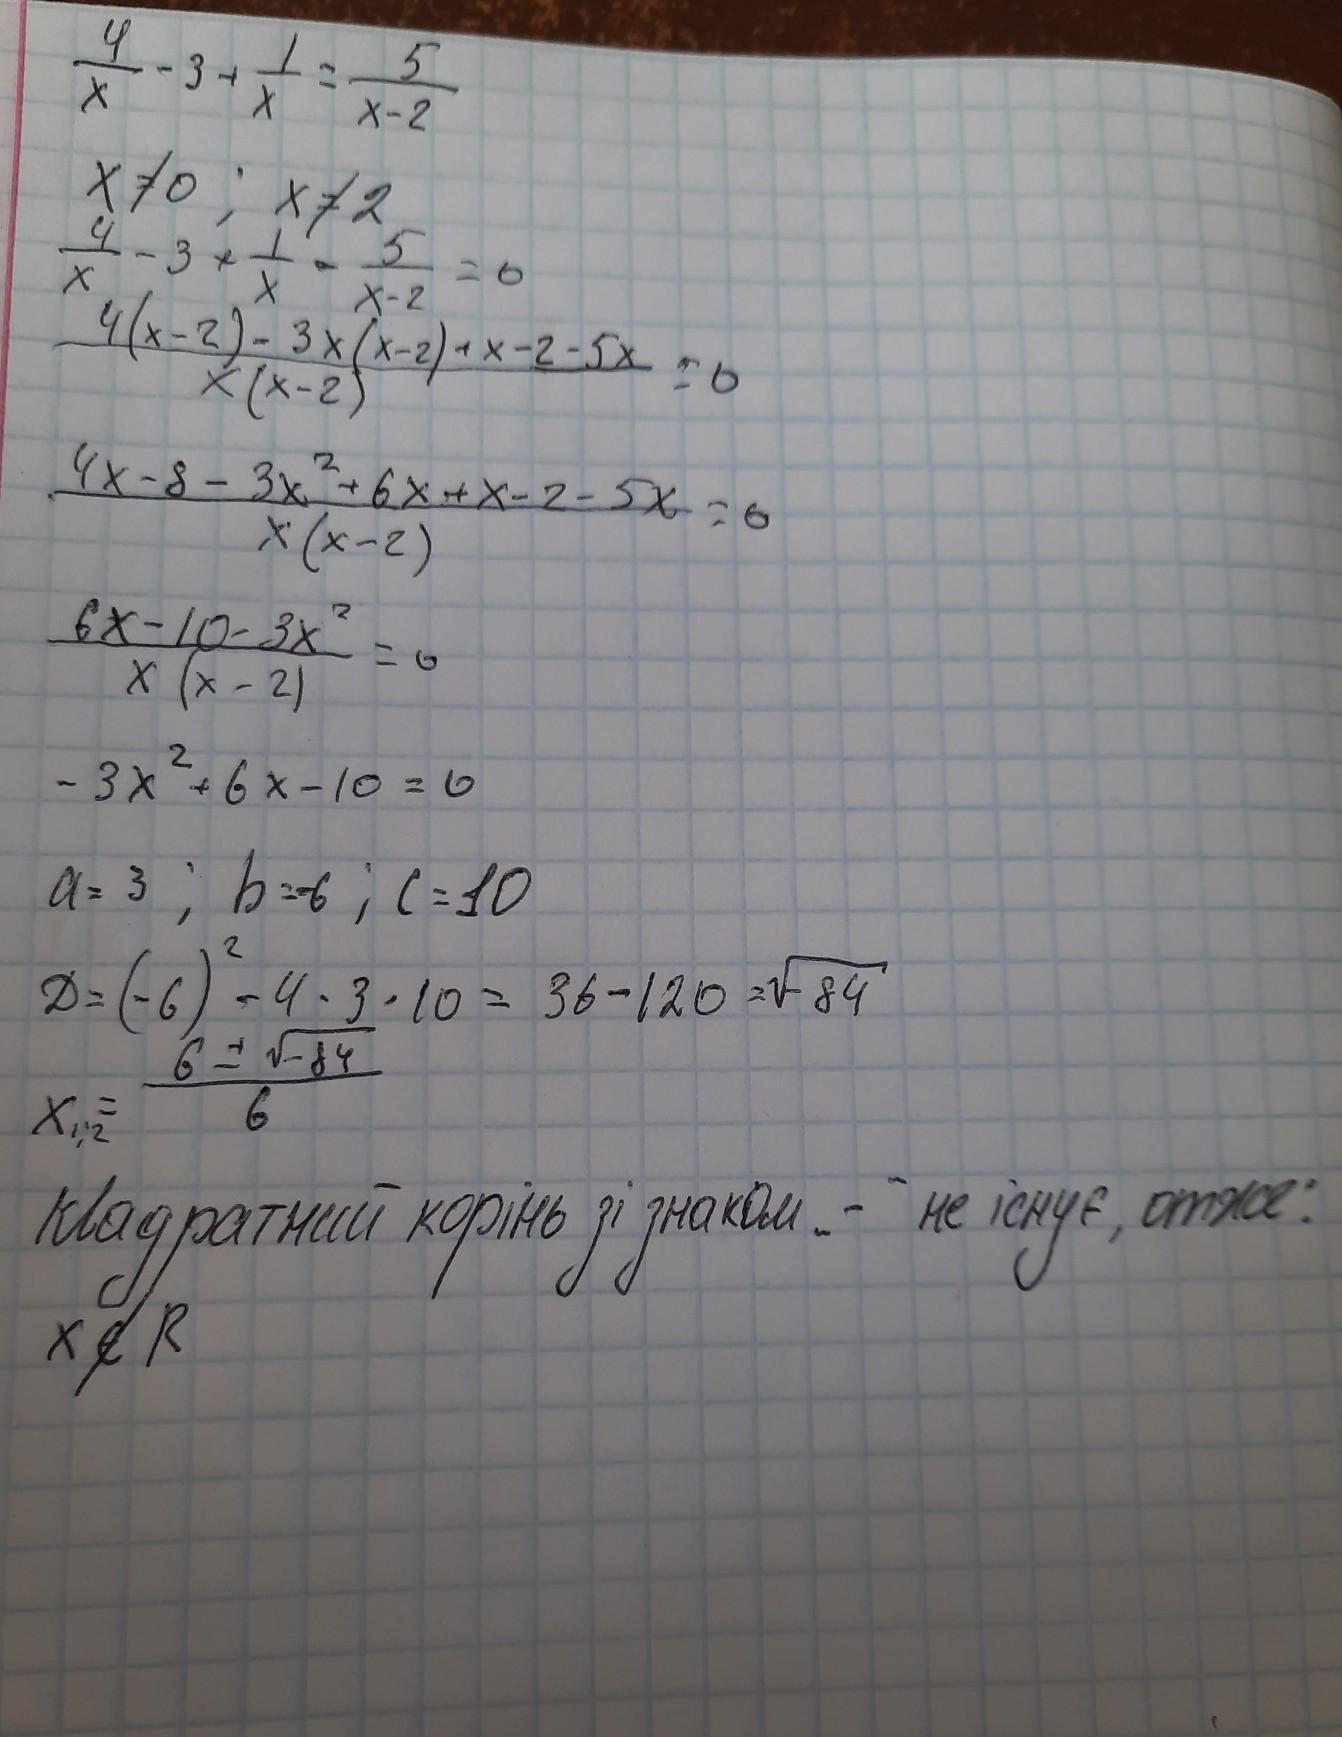 4/x - 3 + 1/x = 5/(x-2)
x ≠ 0 ; x ≠ 2
4/x - 3 + 1/x - 5/(x-2) = 0
(4(x-2) - 3x(x-2) + x - 2 - 5x)/(x(x-2)) = 0
(4x - 8 - 3x² + 6x + x - 2 - 5x)/(x(x-2)) = 0
(6x - 10 - 3x²)/(x(x-2)) = 0
-3x² + 6x - 10 = 0
a = 3 ; b = -6 ; c = 10
D = (-6)² - 4 · 3 · 10 = 36 - 120 = √-84
x₁;₂ = (6 ± √-84)/6
Квадратний корінь зі знаком „-“ не існує, отже:
x ∉ R